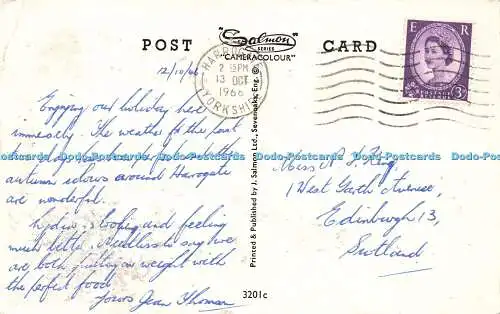 POST
"Salmon
SERIES
"CAMERACOLOUR"
CARD
HARROGATE
2 PM
13 OCT
1966
YORKSHIRE
E R
POSTAGE
REVENUE
3D
12/10/66
Enjoying our holiday here
immensely. The weather for the past
autumn colours around Harrogate
are wonderful.
Lydia is looking and feeling
much better. Needless to say we
are both putting on weight with
the perfect food
Yours Jean Thomson
Miss A. S. King
1 West Garth Avenue,
Edinburgh 13,
Scotland
Printed & Published by J. Salmon Ltd., Sevenoaks, Eng. ©
3201c
Dodo-Postcards Dodo-Postcards Dodo-Postcards Dodo-Postcards Dodo-Postcards Dodo-Postcards